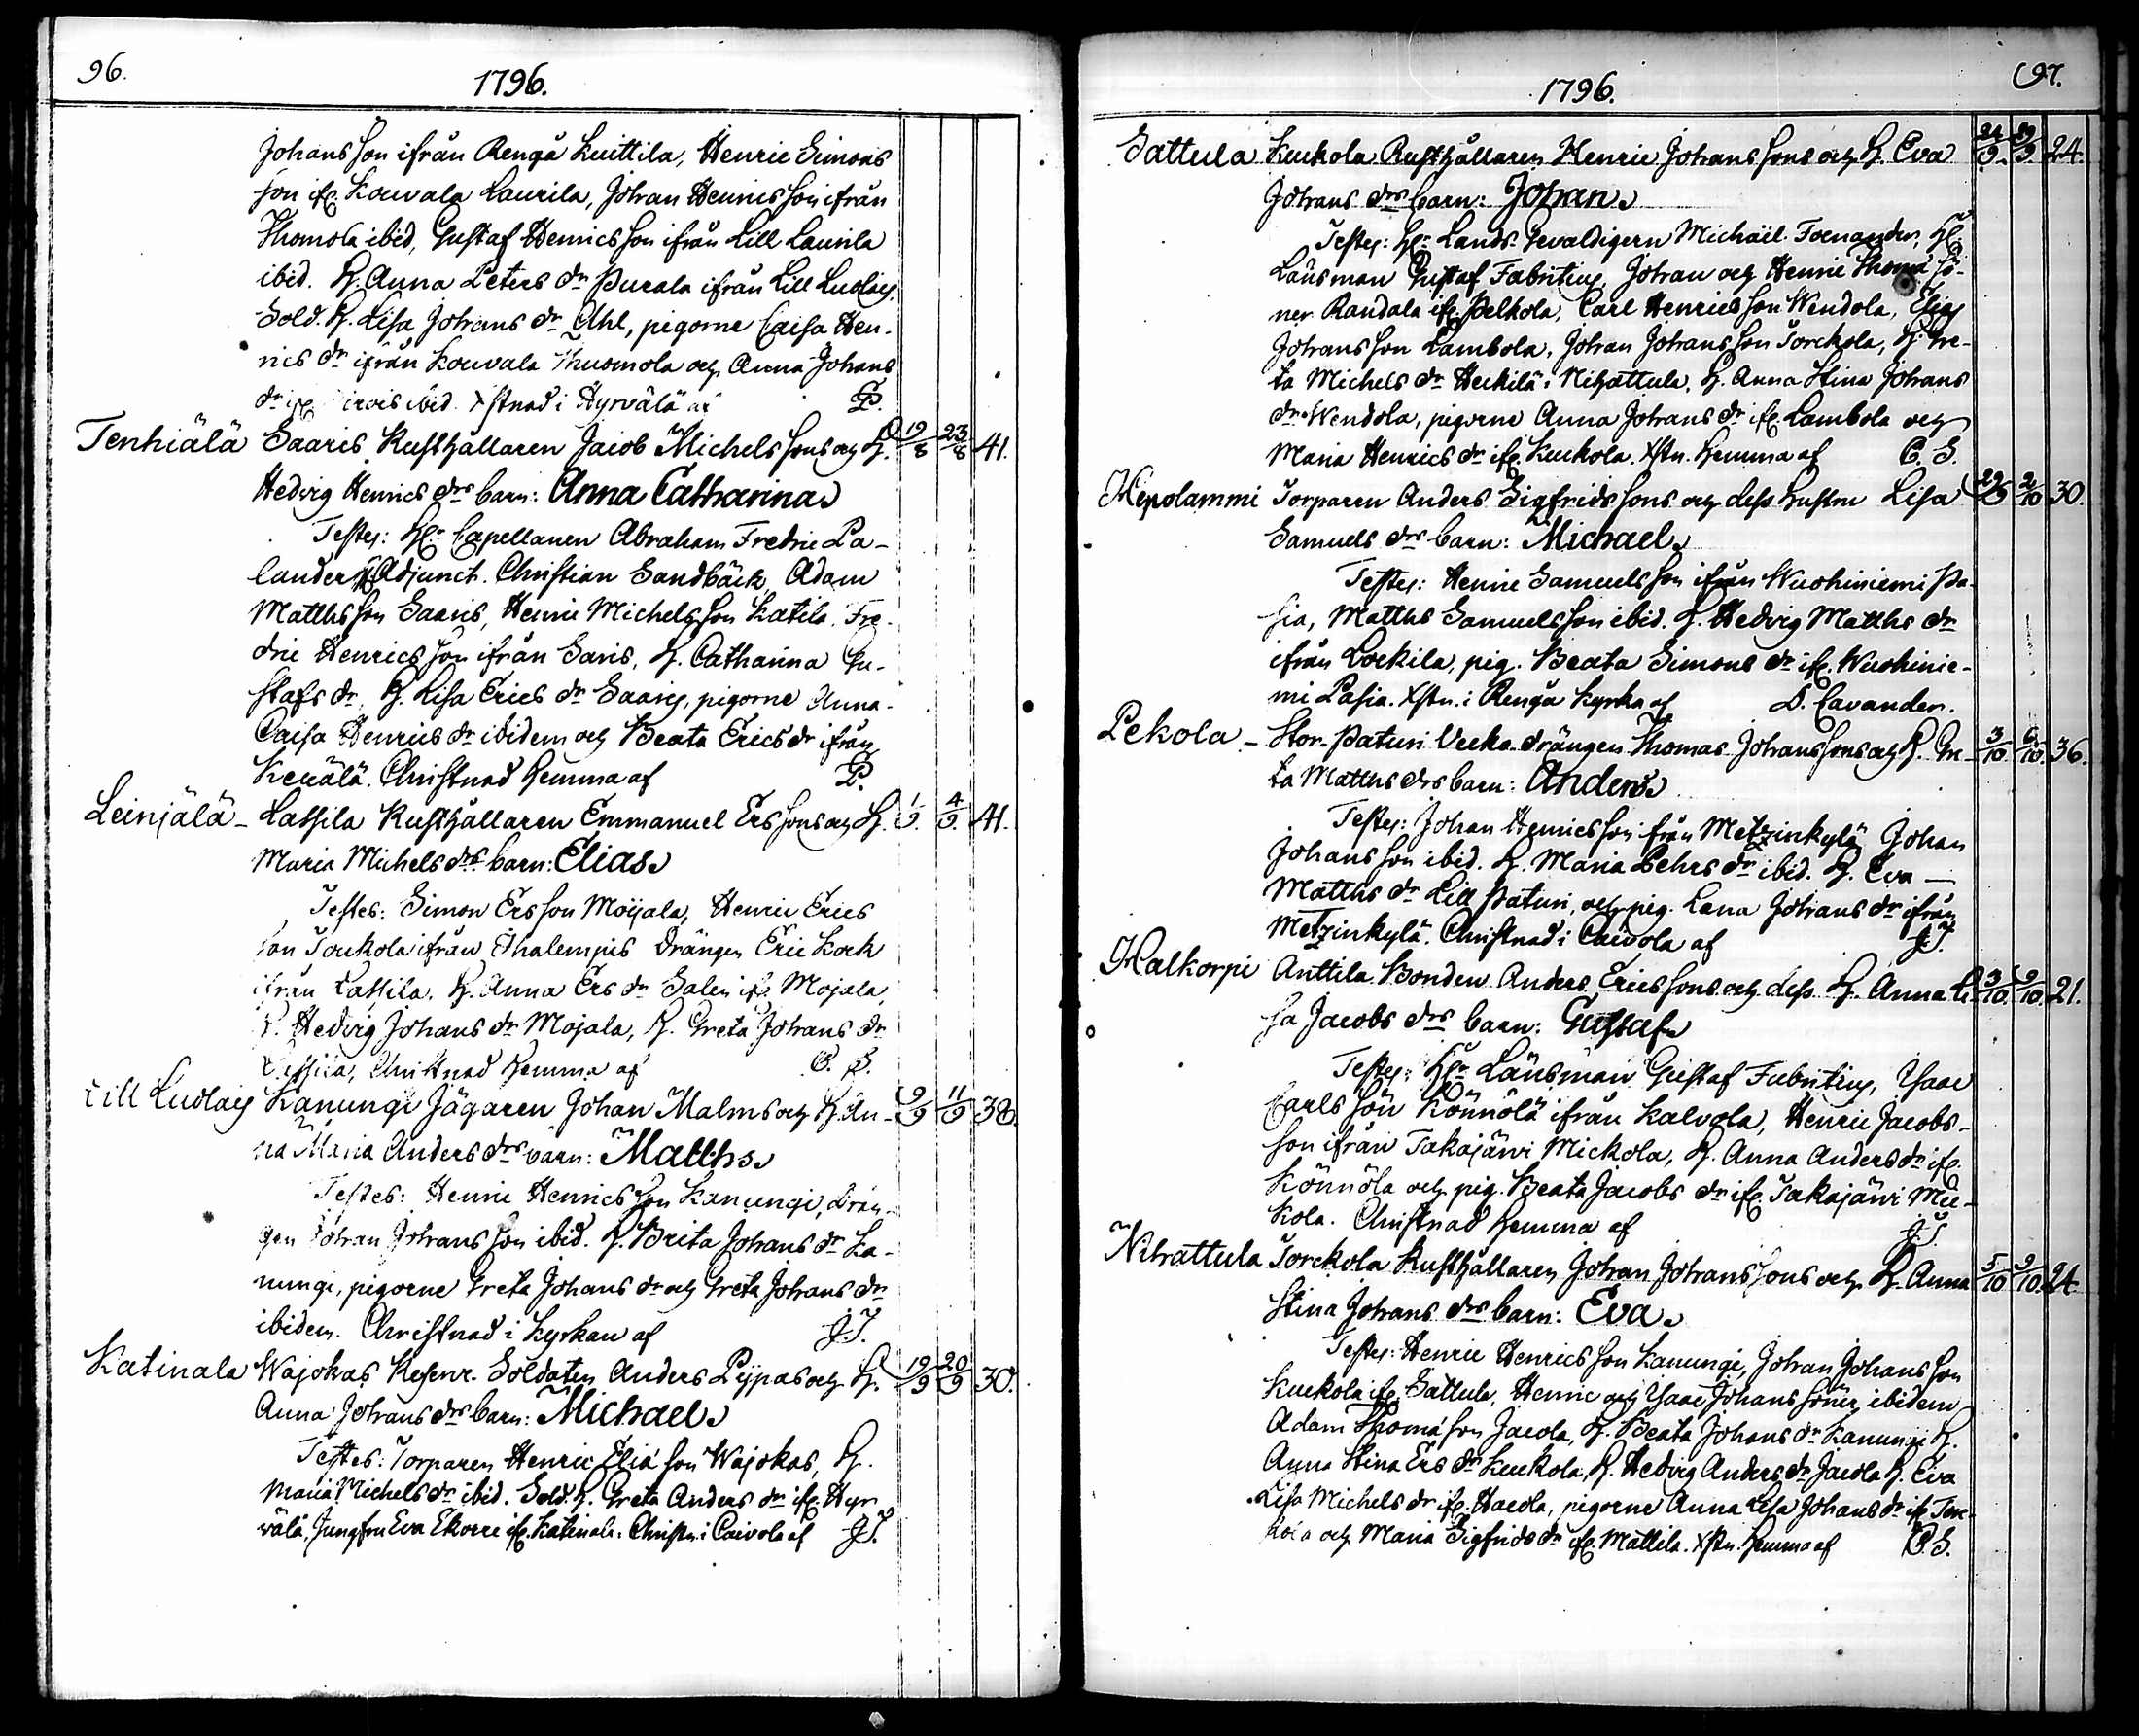 96.
1796.
Johansson ifrån Rengå Kuittila, Henric Simons
son if. Kouvala Laurila, Johan Henricsson ifrån
Thomola ibid, Gustaf Henricsson ifrån Lill Laurila
ibid. H. Anna Peters dr Purala ifrån Lill Luolais.
Sold. H. Lisa Johans dr Ahl, pigorne Caisa Hen-
rics dr ifrån Kouvala Thuomola och Anna Johans
dr if. ibid. Xstnad i Hyrvälä af P.
Tenhiälä Saaris Rusthållaren Jacob Michelssons och H. 19/8 23/8 41.
Hedvig Henrics drs barn: Anna Catharina
Testes: Hr Capellanen Abraham Fredric Pa-
lander, Adjunct. Christian Sandbäck, Adam
Matthsson Saaris, Henric Michelsson Katila, Fre-
dric Henricsson ifrån Saris, H. Catharina Gu-
stafs dr, H. Lisa Erics dr Saaris, pigorne Anna-
Caisa Henrics dr ibidem och Beata Erics dr ifrån
Keuälä. Christnad hemma af P.
Leinjälä - Lassila Rusthållaren Emmanuel Erssons och H. 1/9. 4/9. 41.
Maria Michels drs barn: Elias
Testes: Simon Ersson Moijala, Henric Erics
son Toukola ifrån Thalempis Drängen Eric Kock
ifrån Lassila. H. Anna Ers dr Salen if. Mojala,
H. Hedvig Johans dr Mojala, H. Greta Johans dr
Lassila, Christnad hemma af C. S.
Lill Luolais Kanungi Jägaren Johan Malms och H. An- 9/9 11/9 38.
na Maria Anders drs barn: Matths
Testes: Henric Henricsson Kanungi, Drän-
gen Johan Johansson ibid. H. Brita Johans dr Ka-
nungi, pigorne Greta Johans dr och Greta Johans dr
ibidem. Christnad i Kyrkan af J.T.
Katinala Wajokas Reserv. Soldaten Anders Pijpas och H. 19/9 20/9 30.
Anna Johans drs barn: Michael
Testes: Torparen Henric Eliæ son Wajokas, H.
Maria Michels dr ibid. Sold. H. Greta Anders dr if. Hyr
välä, Jungfru Eva Ekorre if. Katinala. Christn. i Caivola af J.T.
97.
1796.
Sattula Kuckola Rusthållaren Henric Johanssons och H. Eva 24/9. 29/9. 24.
Johans drs barn: Johan
Testes: Hr Lands Gevaldigern Michaël Foenander, Hr
Länsman Gustaf Fabritius, Johan och Henric Thomæ sö-
ner Randala if. Pelkola, Carl Henricsson Wendola, Elias
Johansson Lambola, Johan Johansson Torckola, H. Gre-
ta Michels dr Heikilä i Nihattula, H. Anna Stina Johans
dr Wendola, pigorne Anna Johans dr if. Lambola och
Maria Henrics dr if. Kuckola. Xstn. hemma af C. S.
Hepolammi Torparen Anders Sigfridssons och dess hustru Lisa 29/9 2/10 30.
Samuels drs barn: Michael
Testes: Henric Samuelsson ifrån Wuohiniemi Pa-
sia, Matths Samuelsson ibid. H. Hedvig Matths dr
ifrån Lockila, pig. Beata Simons dr if. Wuohinie-
mi Pasia. Xstn. i Rengå Kyrka af D. Cavander.
Pekola - Stor-Paturi Vecko-drängen Thomas Johanssons och H. Gre- 3/10. 6/10. 36.
ta Matths drs barn: Anders
Testes: Johan Henricsson ifrån Metzinkylä Johan
Johansson ibid. H. Maria Pehrs dr ibid. H. Eva -
Matths dr Lill Paturi, och pig. Lena Johans dr ifrån
Metzinkylä. Christnad i Caivola af J.T.
Halkorpi Anttila Bonden Anders Ericssons och dess H. Anna Li- 3/10. 9/10. 21.
sa Jacobs drs barn: Gustaf
Testes: Hr Länsman Gustaf Fabritius, Isaac
Carlsson Könnölä ifrån Kalvola, Henric Jacobs-
son ifrån Takajärvi Mickola, H. Anna Anders dr if.
Könnölä och pig. Beata Jacobs dr if. Takajärvi Mic-
kola. Christnad hemma af J.T.
Nihattula Torckola Rusthållaren Johan Johanssons och H. Anna 5/10 9/10. 24.
Stina Johans drs barn: Eva
Testes: Henric Henricsson Kanungi, Johan Johansson
Kuckola if. Sattula, Henric och Isaac Johanssöner ibidem
Adam Thomæ son Jacola, H. Beata Johans dr Kanungi H.
Anna Stina Ers dr Kuckola, H. Hedvig Anders dr Jacola H. Eva
Lisa Michels dr if. Hacola, pigorne Anna Lisa Johans dr if. Torc-
kola och Maria Sigfrids dr if. Mattila. Xstn. hemma af C.S.